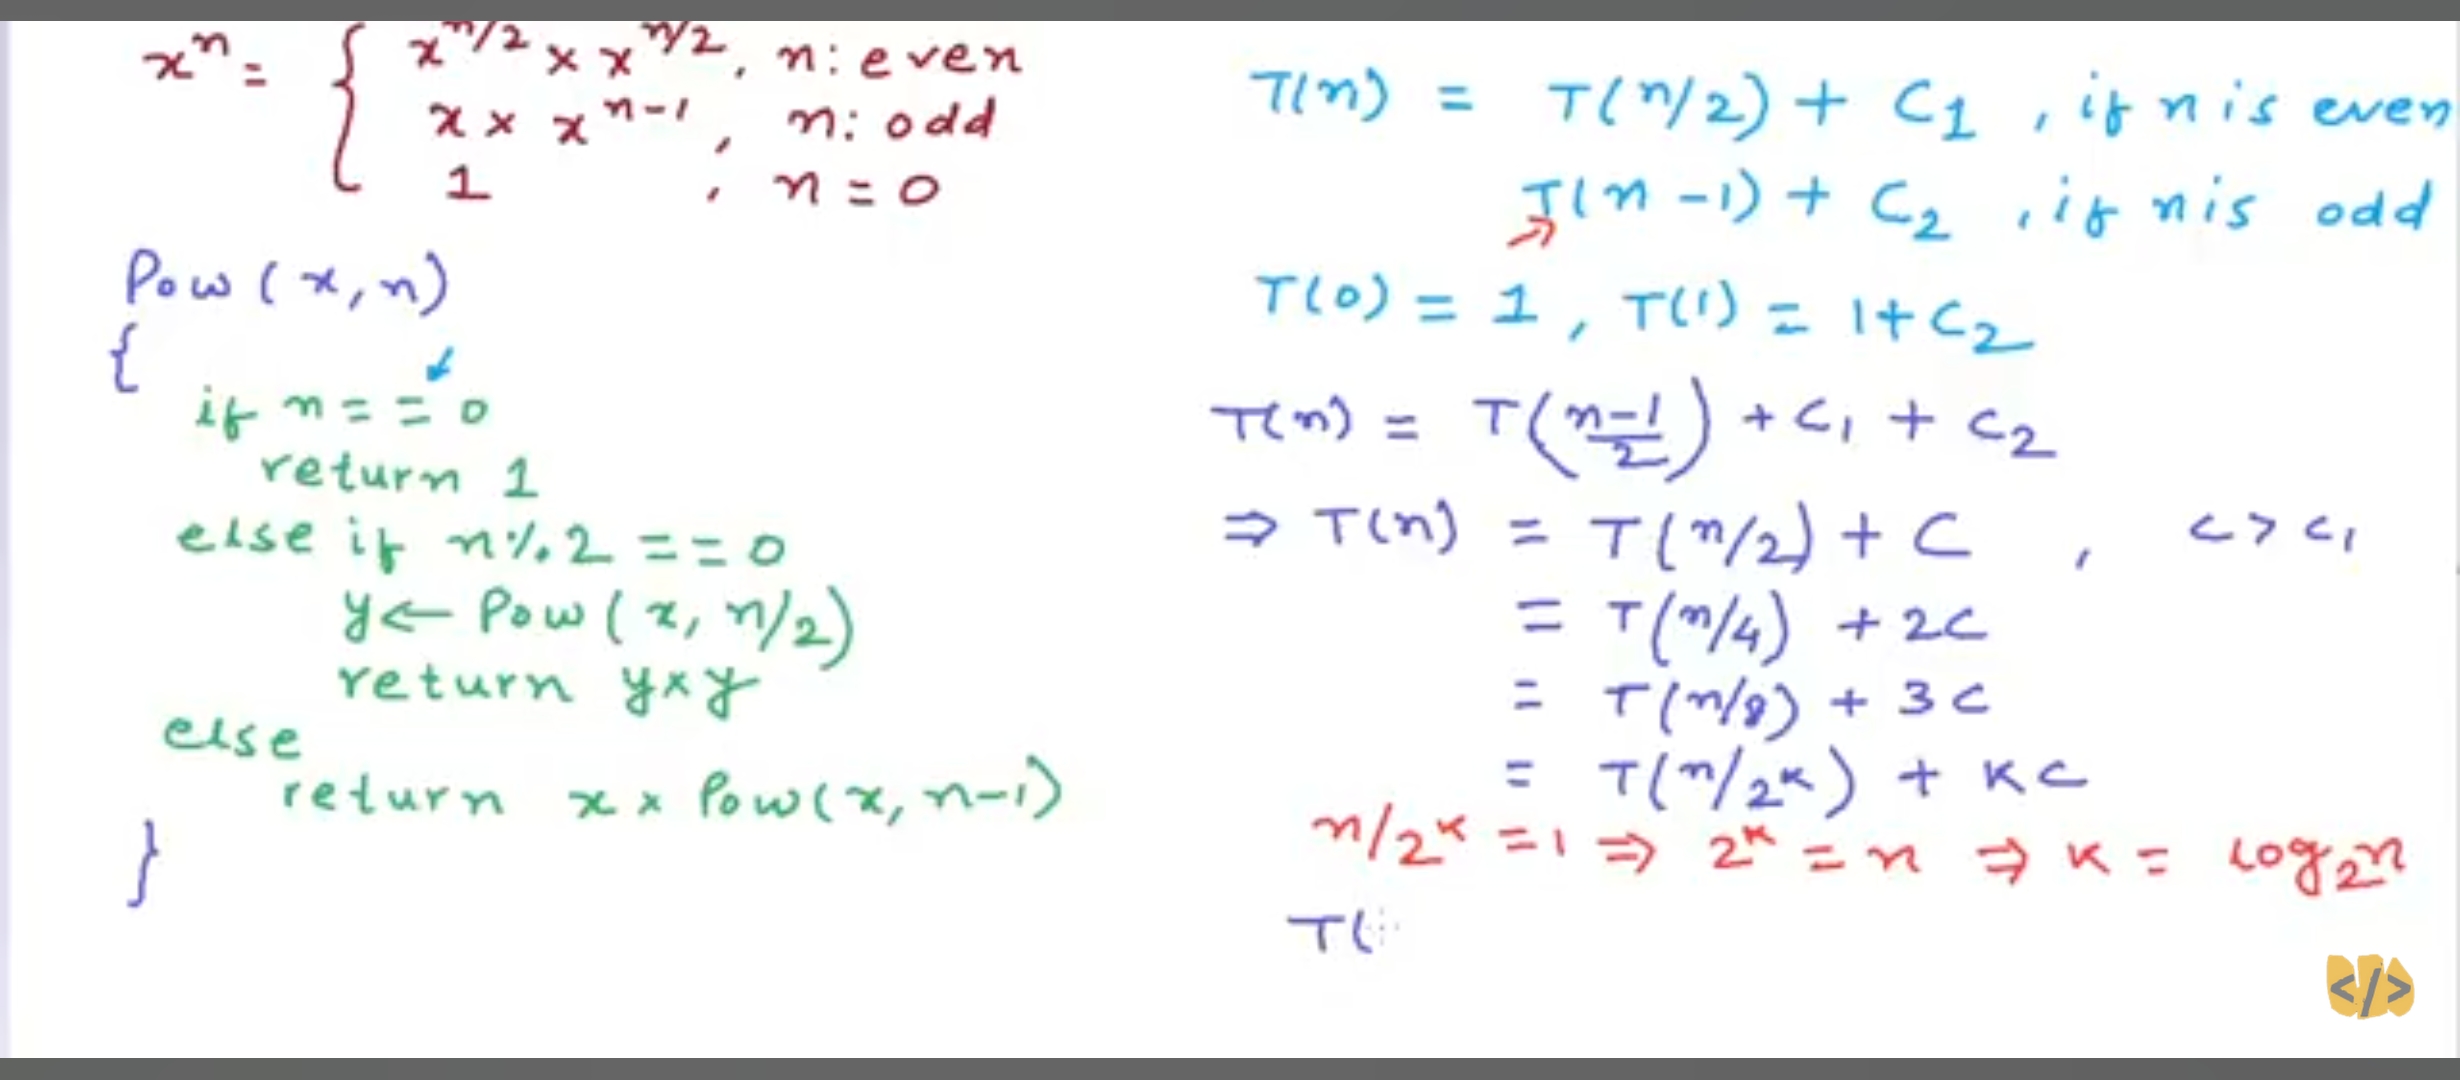 xⁿ = { x^(n/2) × x^(n/2), n: even
x × x^(n-1), n: odd
1, n = 0
Pow(x, n)
{
if n == 0
return 1
else if n % 2 == 0
y ← Pow(x, n/2)
return y × y
else
return x × Pow(x, n-1)
}
T(n) = T(n/2) + C1, if n is even
T(n-1) + C2, if n is odd
T(0) = 1, T(1) = 1 + C2
T(n) = T((n-1)/2) + C1 + C2
⇒ T(n) = T(n/2) + C, C > C1
= T(n/4) + 2C
= T(n/8) + 3C
= T(n/2^K) + KC
n/2^K = 1 ⇒ 2^K = n ⇒ K = log₂n
T(
</>